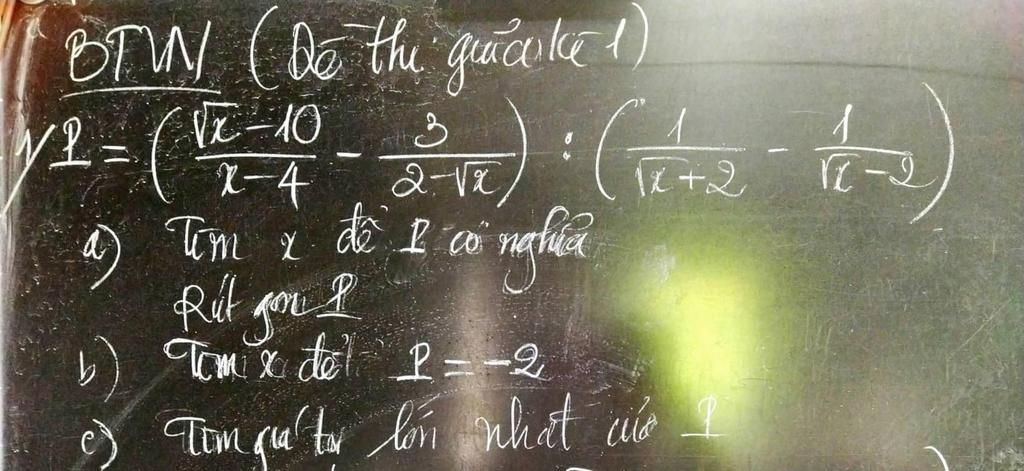 BTVN (Đề thi giữa kì 1)
1/ P = (√x-10 / x-4 - 3 / 2-√x) : (1 / √x+2 - 1 / √x-2)
a) Tìm x để P có nghĩa
Rút gọn P
b) Tìm x để P = -2
c) Tìm giá trị lớn nhất của P